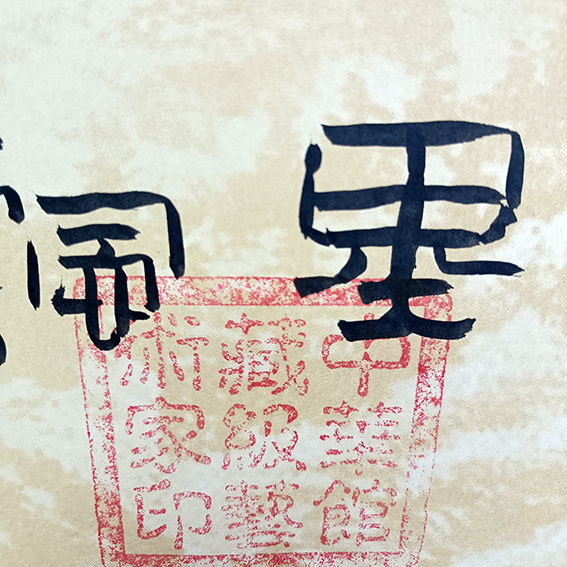 墨
中華館
藏級藝
術家印